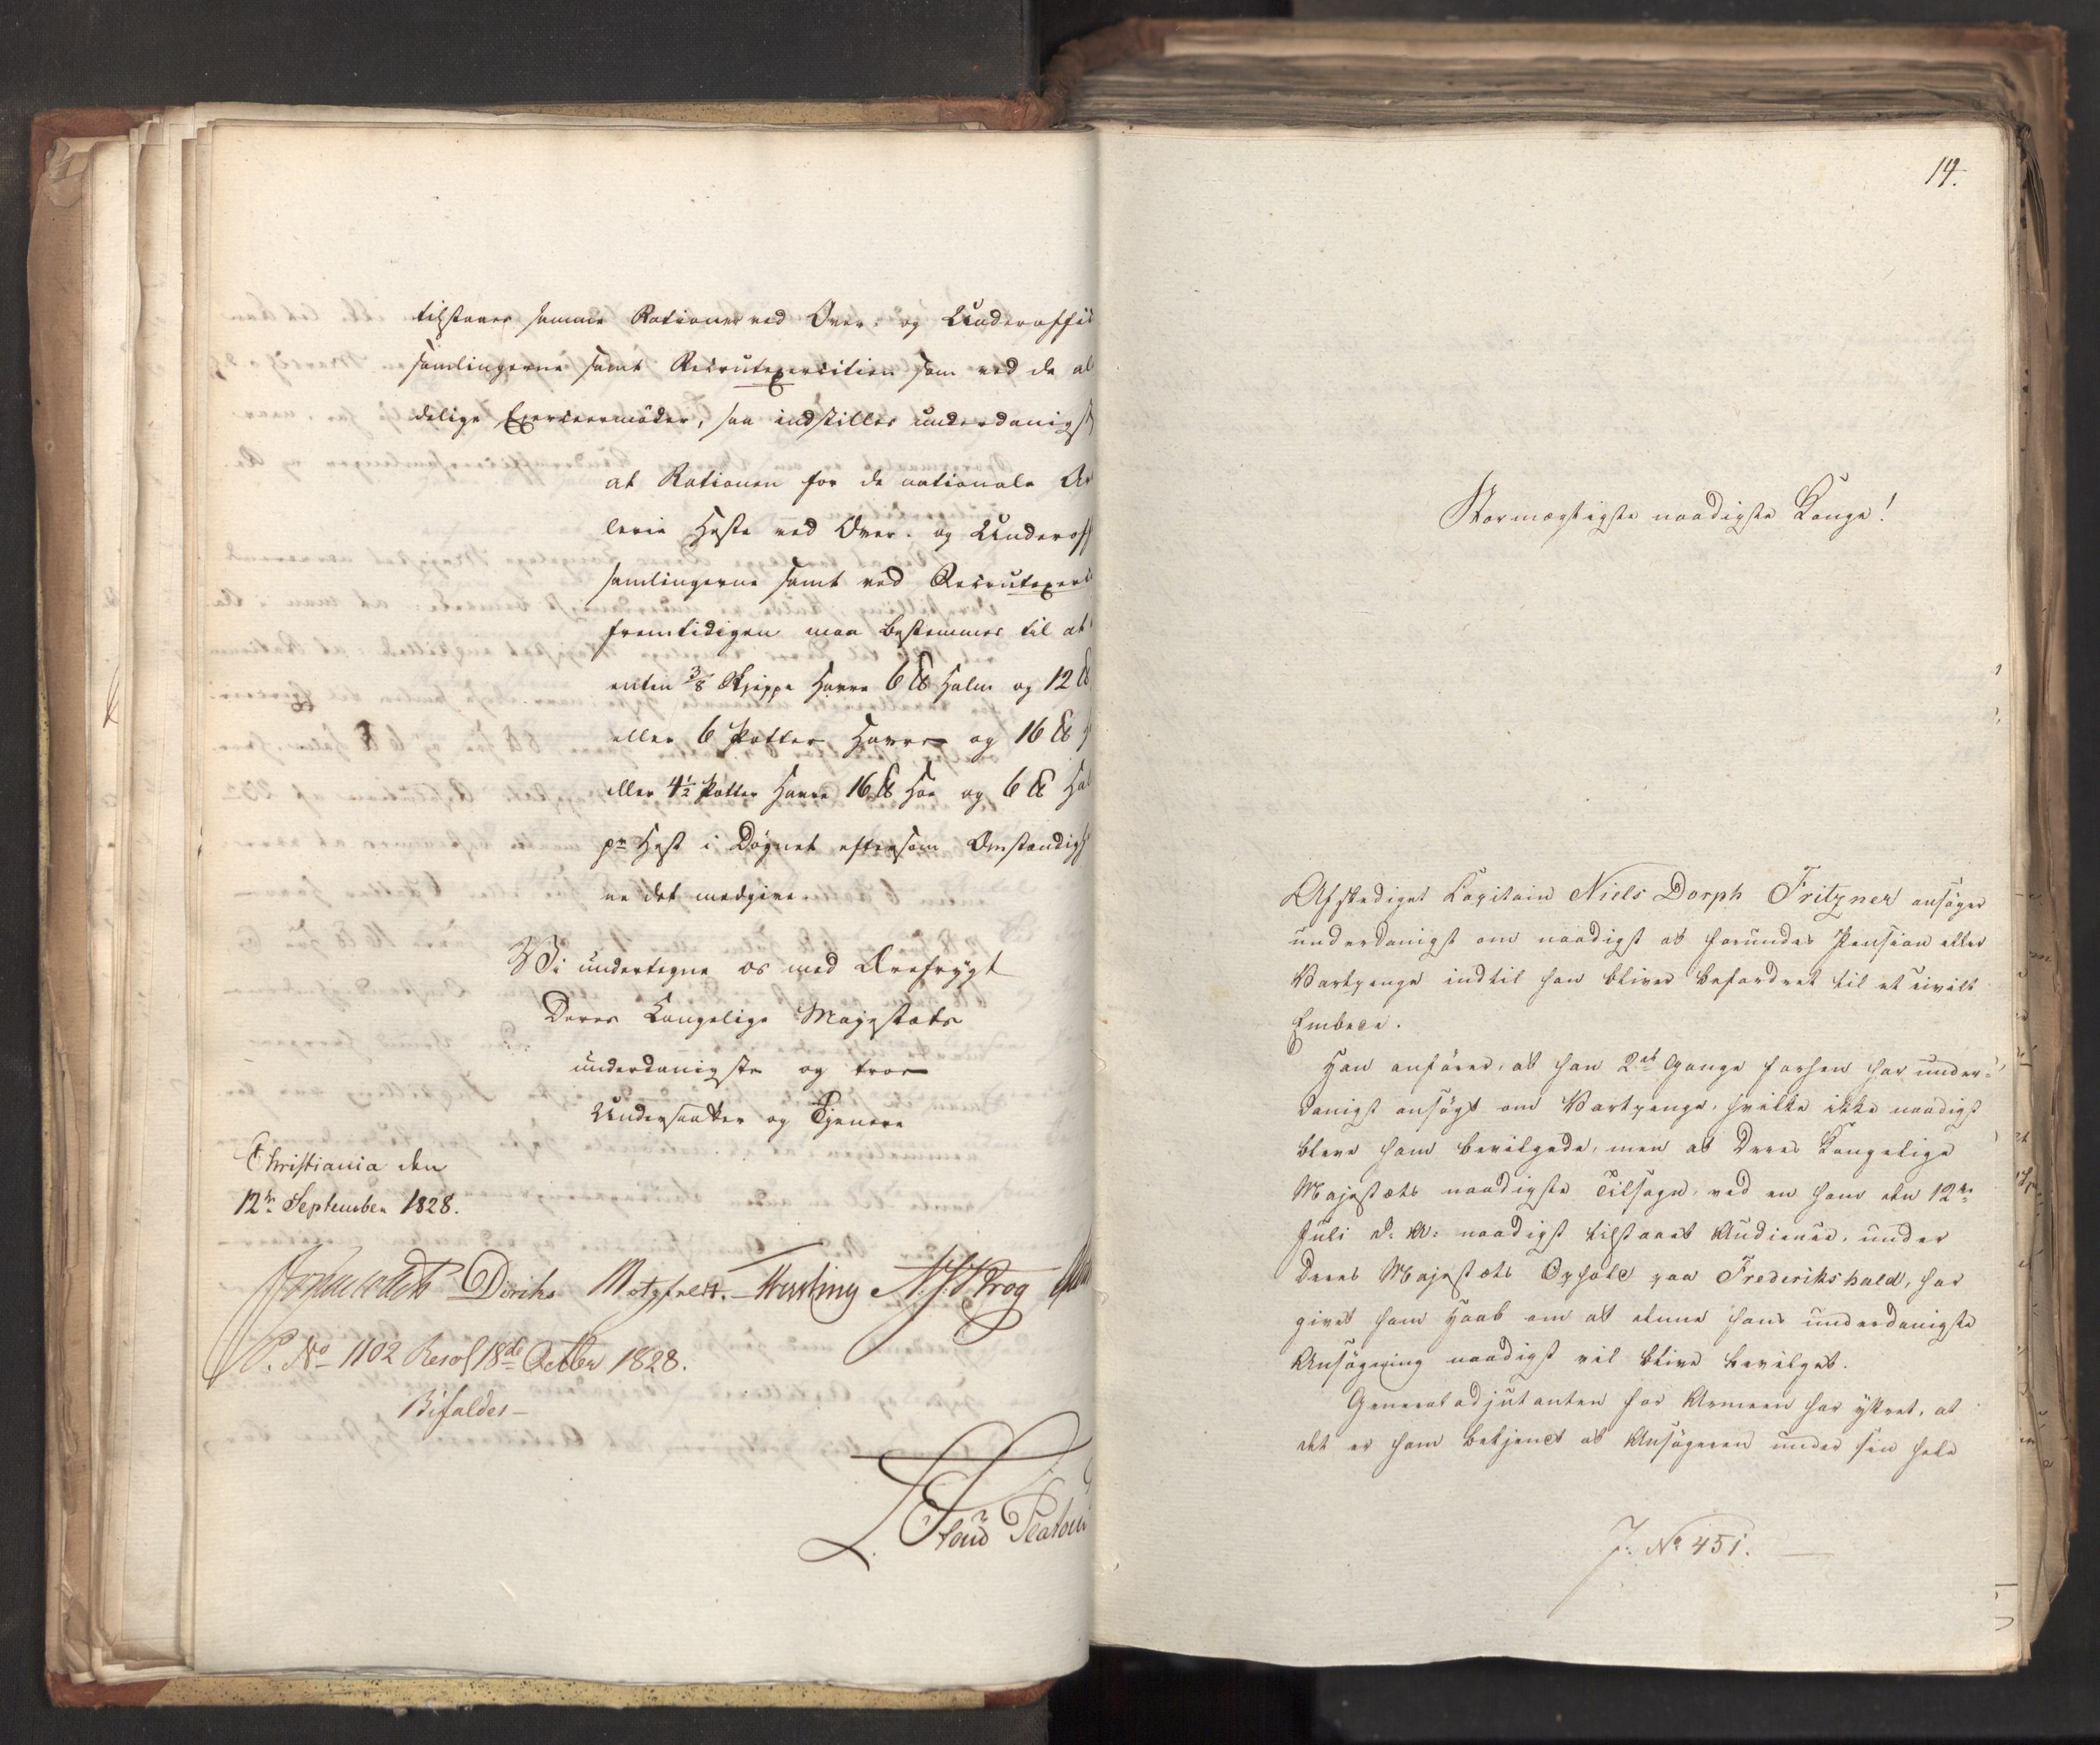 tilstaaes samme Rationer ved Over- og Underoffic
samlingerne samt Recrutexercitien som ved de al
delige Exerceermöder, saa indstilles underdanigst
at Rationen for de nationale Ar
lerie Heste ved Over- og Underoff
samlingerne samt ved Recrutexerc
fremtidigen maa bestemmes til at
enten 3/8 Skjeppe Havre 6 ℔ Halm og 12 ℔
eller 6 Potter Havre og 16 ℔
eller 4½ Potter Havre 16 ℔ Høe og 6 ℔ Hal
pr Hest i Døgnet eftersom Omstændigh
ne det medgive.
Vi undertegne os med Ærefrygt
Deres Kongelige Majestæts
underdanigste og troe
Undersaatter og Tjenere
Christiania den
12te September 1828.
Diriks Motzfeldt. Hesting N. J. Krog
P. No 1102 Resol 18de October 1828.
Bifaldes
14.
Stormægtigste naadigste Konge!
Afskediget Capitain Niels Dorph Fritzner ansöger
underdanigst om naadigst at forundes Pension eller
Vartpenge indtil han bliver befordret til et civilt
Embede.
Han anfører, at han 2de Gange forhen har under-
danigst ansögt om Vartpenge, hvilke ikke naadigst
bleve ham bevilgede, men at Deres Kongelige
Majestæts naadigste Tilsagn, ved en ham den 12te
Juli d. A. naadigst tilstaaet Audience, under
Deres Majestæts Ophold paa Frederikshald, har
givet ham Haab om at denne hans underdanigste
Ansögning naadigst vil blive bevilget.
Generaladjutanten for Armeen har yttret, at
det er ham bekjendt at Ansögeren under sin hele
J. No 451.